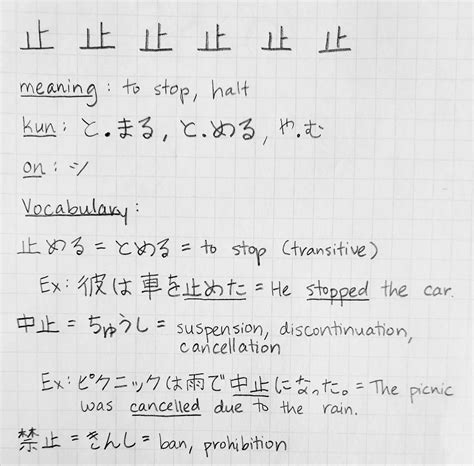 止 止 止 止 止 止
meaning : to stop, halt
kun : と.まる, と.める, や.む
on : シ
Vocabulary :
止める = とめる = to stop (transitive)
Ex: 彼は車を止めた = He stopped the car.
中止 = ちゅうし = suspension, discontinuation,
cancellation
Ex: ピクニックは雨で中止になった。= The picnic
was cancelled due to the rain.
禁止 = きんし = ban, prohibition